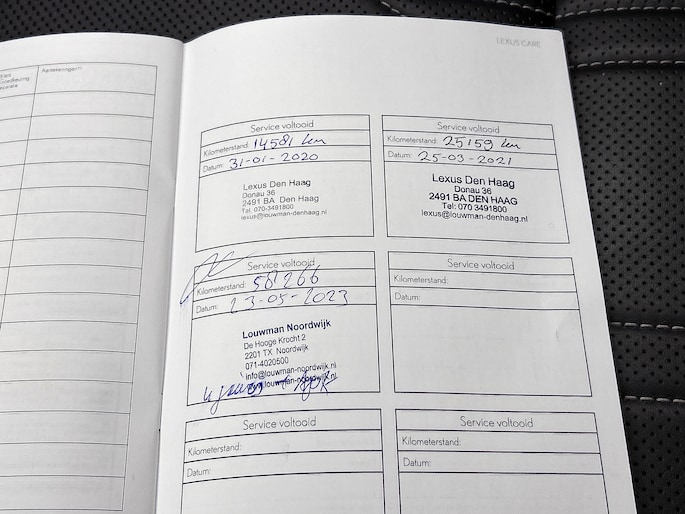 Aantekeningen
LEXUS CARE
Service voltooid
Kilometerstand: 14581 km
Datum: 31-01-2020
Lexus Den Haag
Donau 36
2491 BA Den Haag
Tel. 070-3491800
lexus@louwman-denhaag.nl
Service voltooid
Kilometerstand: 25159 km
Datum: 25-03-2021
Lexus Den Haag
Donau 36
2491 BA DEN HAAG
Tel: 070 3491800
lexus@louwman-denhaag.nl
Service voltooid
Kilometerstand: 58266
Datum: 23-05-2023
Louwman Noordwijk
De Hooge Krocht 2
2201 TX Noordwijk
071-4020500
info@louwman-noordwijk.nl
Service voltooid
Kilometerstand:
Datum:
Service voltooid
Kilometerstand:
Datum:
Service voltooid
Kilometerstand:
Datum: